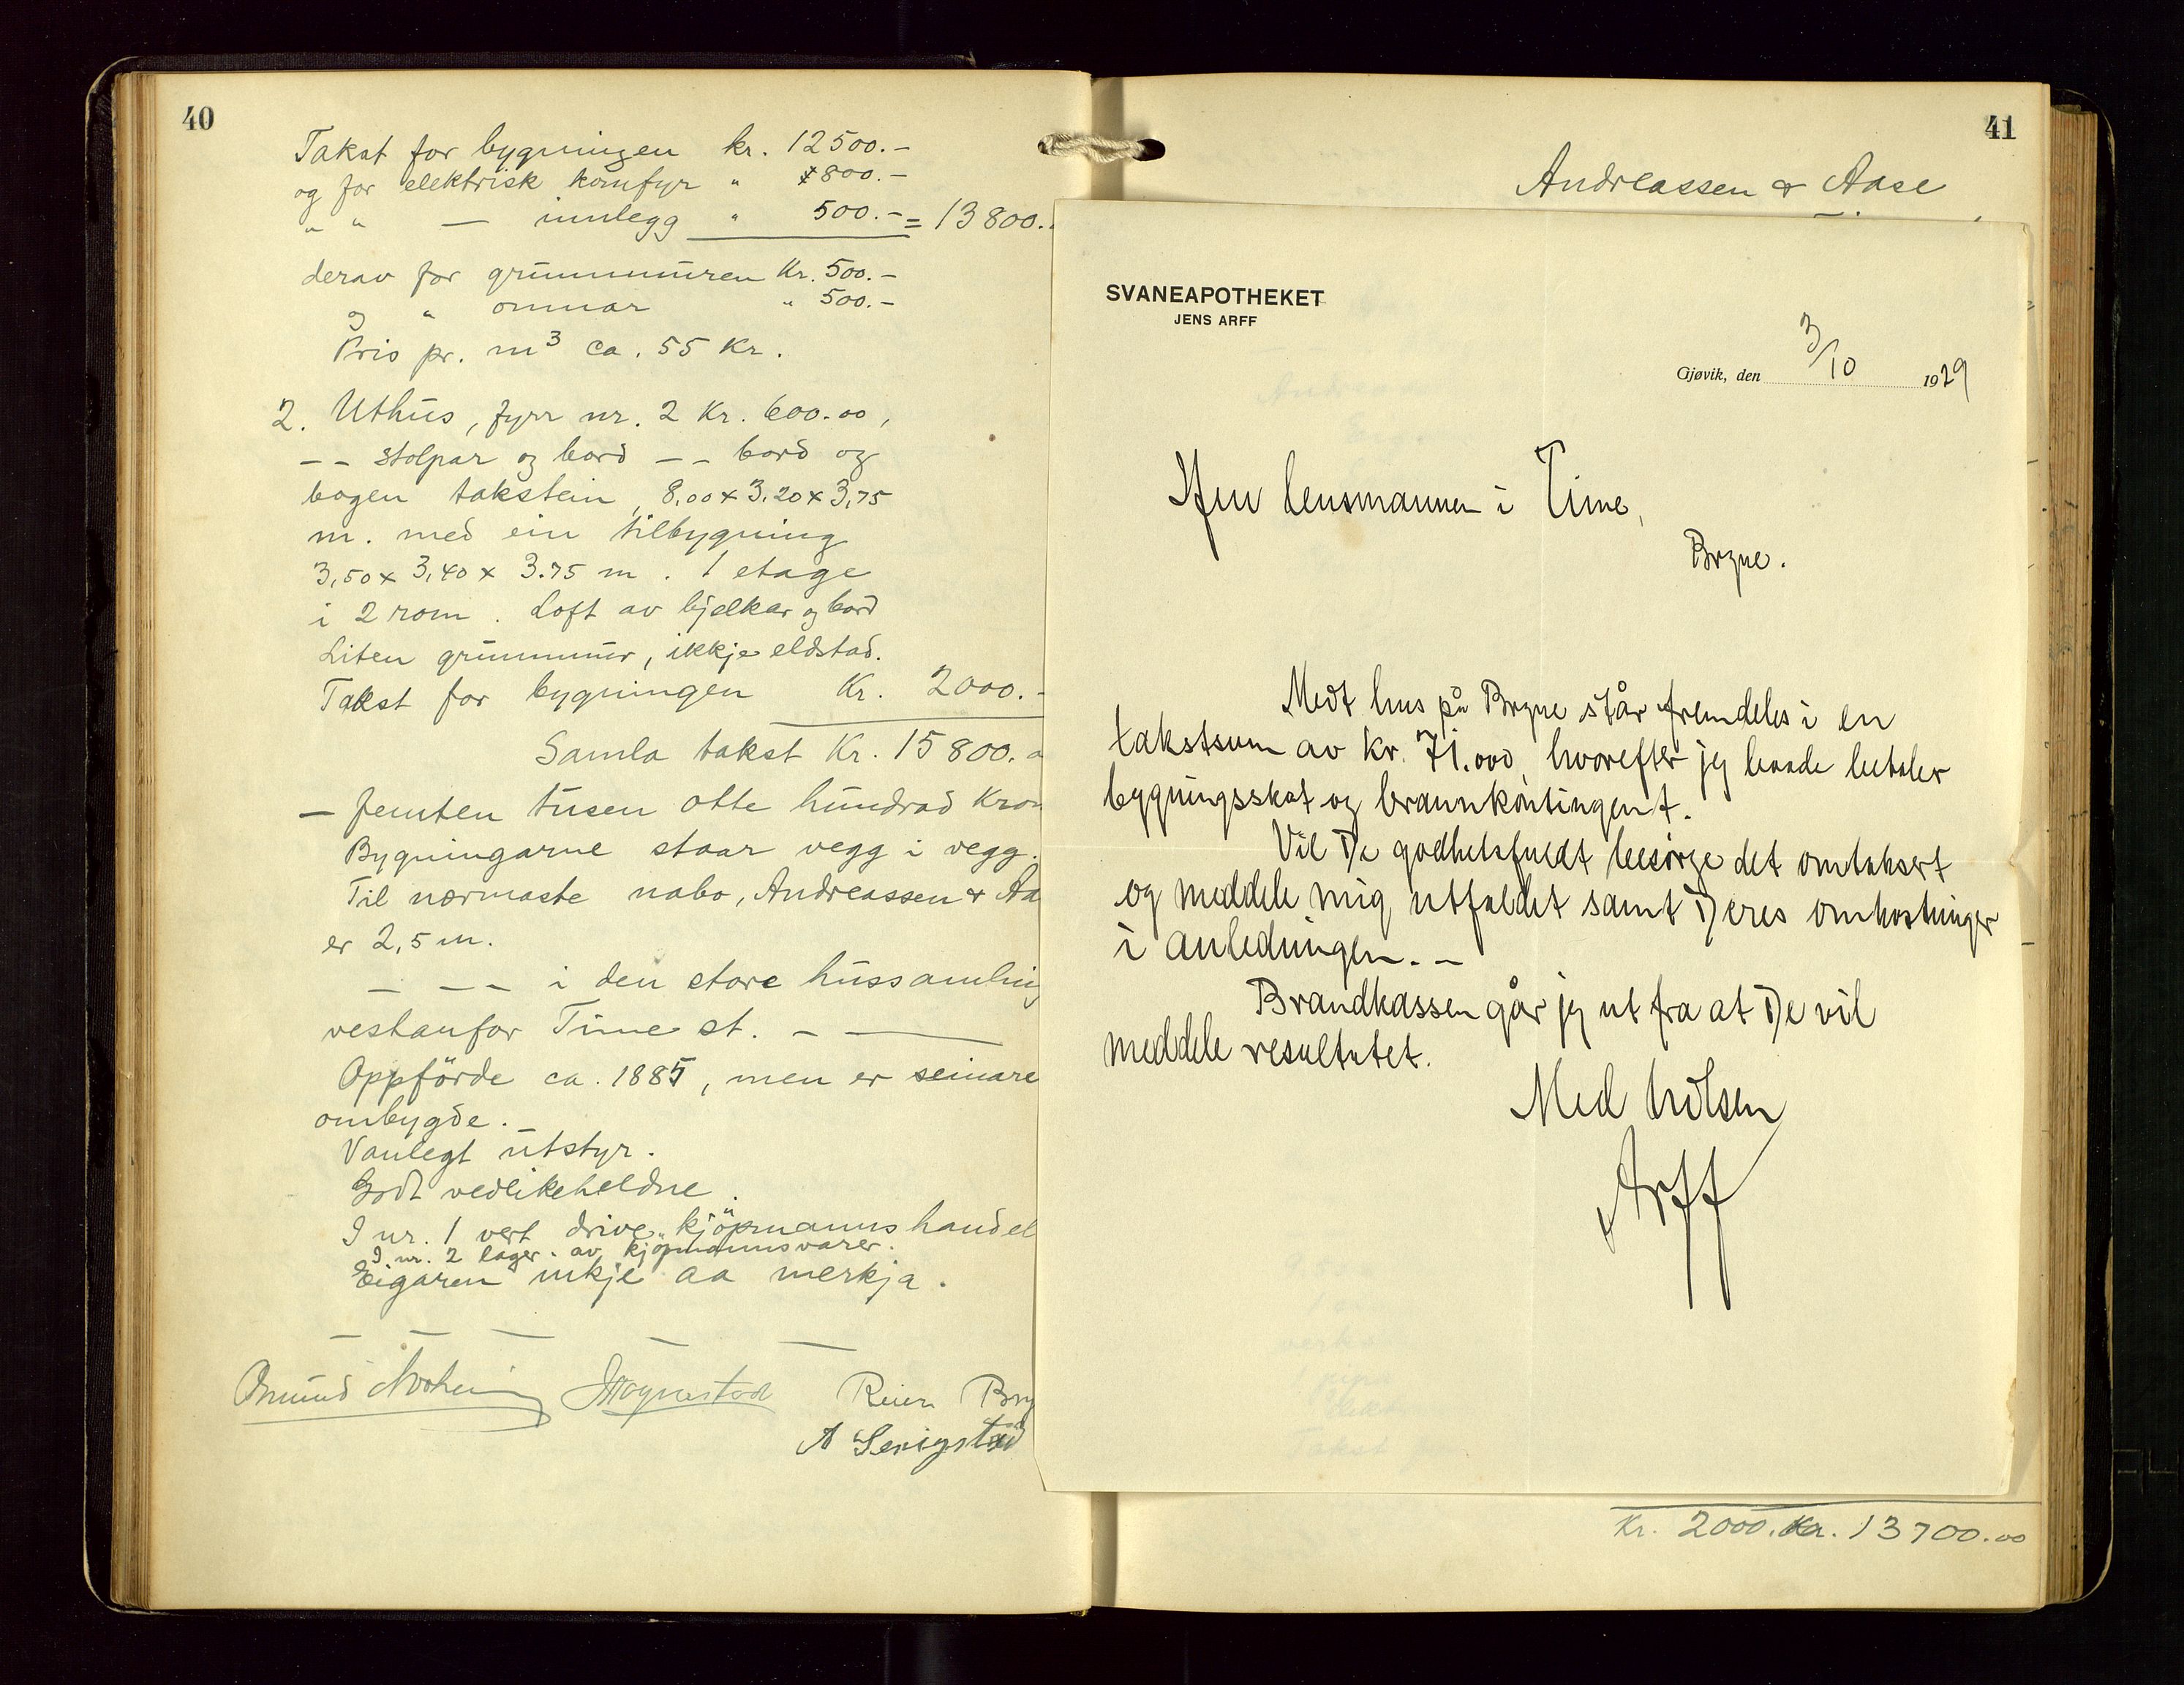 40
Takst for bygningen kr. 12500.-
og for elektrisk komfyr " 800.-
" " — innlegg " 500.- = 13800.
derav for grunnmuren Kr. 500.-
og " omnar " 500.-
Pris pr. m3 ca. 55 Kr.
2. Uthus, fyrr nr. 2 Kr. 600.00,
-- stolpar og bord -- bord og
bogen takstein, 8,00 x 3.20 x 3,75
m. med ein tilbygning
3,50 x 3,40 x 3.75 m. 1 etage
i 2 rom. Loft av bjelkar og bord
Liten grunnmur, ikkje eldstad.
Takst for bygningen Kr. 2000.-
Samla takst Kr. 15800.
— femten tusen otte hundrad Kron
Bygningarne staar vegg i vegg.
Til nærmaste nabo, Andreassen & Aa
er 2,5 m.
— -- i den store hussamling
vestanfor Time st. - —
Oppförde ca. 1885, men er seinare
ombygde.
Vanlegt utstyr.
Godt vedlikeheldne.
I nr. 1 vert drive "kjöpmannshandel
I nr. 2 lager av kjöpmannsvarer.
Eigaren inkje aa merkja.
— — — — —
Reier Bry
A Serigstad
41
Andreassen & Aase
SVANEAPOTHEKET
JENS ARFF
Gjøvik, den 3/10 1929
Herr lensmannen i Time,
Bryne.
Medt hus på Bryne står fremdeles i en
takstsum av Kr. 71.000, hvorefter jeg baade betaler
bygningsskat og brannkontingent.
Vil De godhetsfuldt besørge det omtaksert
og meddele mig utfaldet samt Deres omkostninger
i anledningen. -
Brandkassen går jeg ut fra at De vil
meddele resultatet.
Med hilsen
Arff
Kr. 2000. Kr. 13700.00